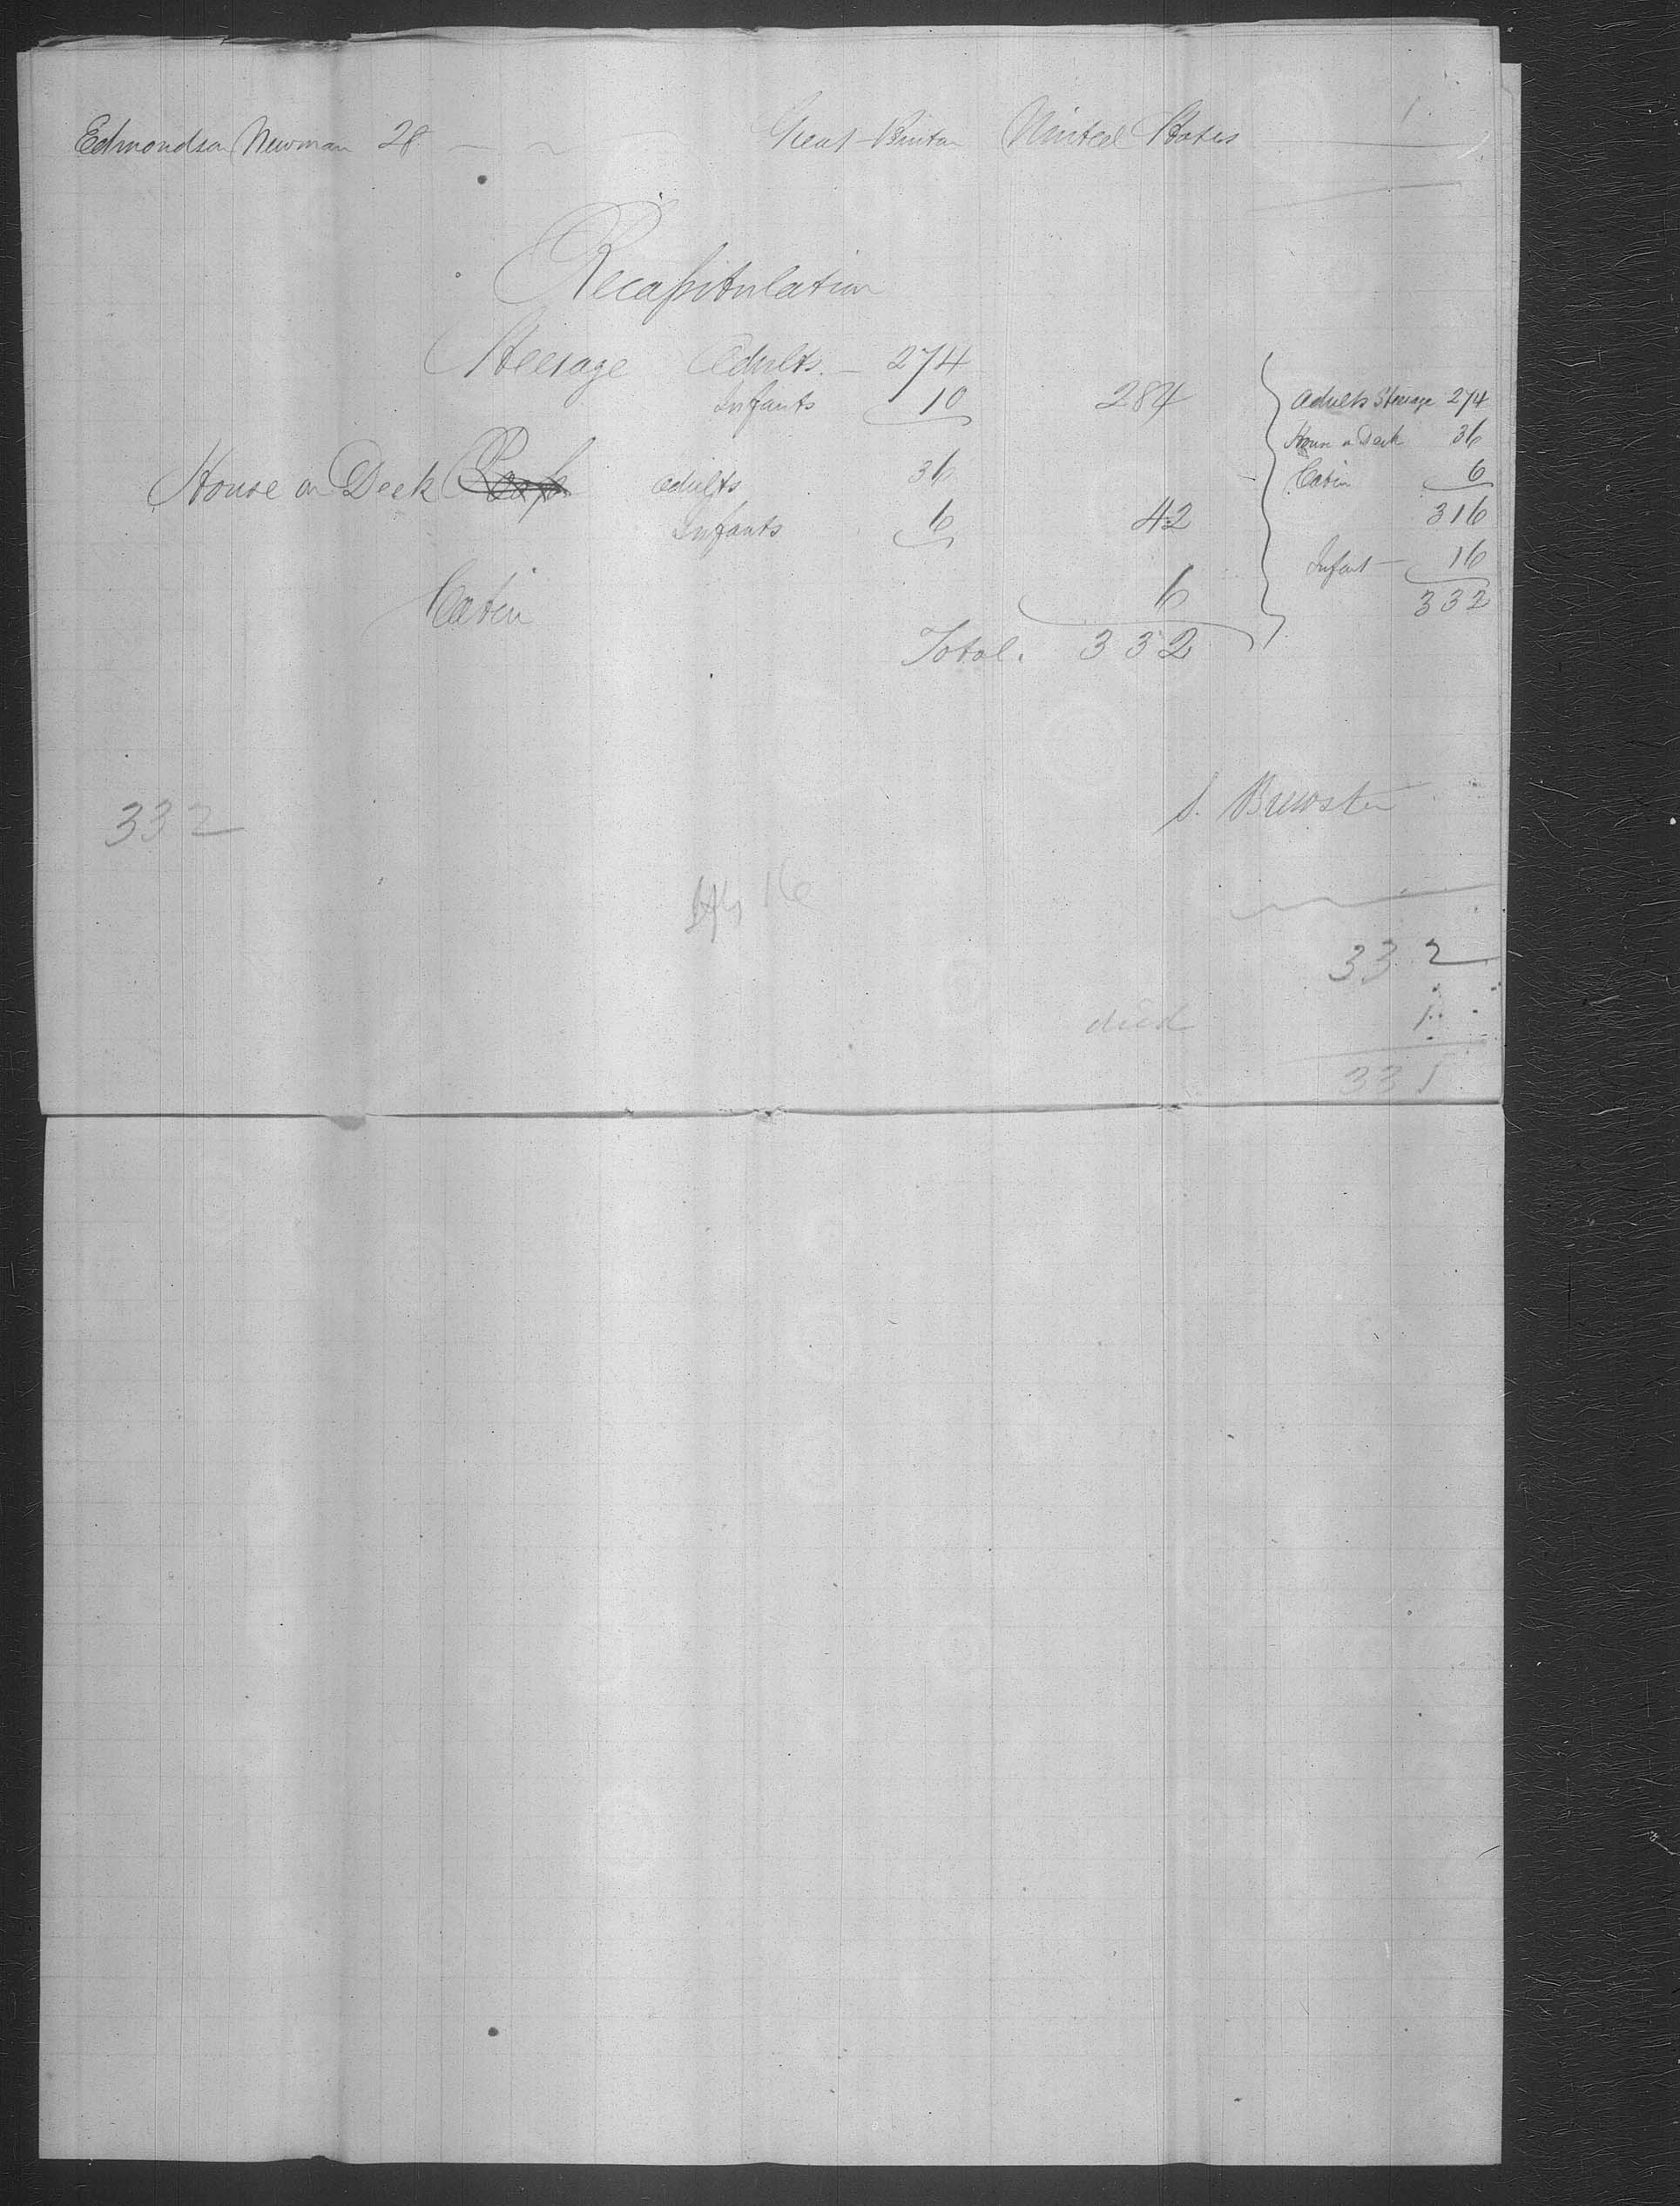 Edmondson Newman 28 — Great Britan United States 1
Recapitulation
Steerage Adults. — 274
Infants 10 284
House on Deck Adults 36
Infants 6 42
Cabin 6
Total. 332
Adults Steerage 274
House on Deck 36
Cabin 6
316
Infant — 16
332
S. Brewster
332
16
332
died 1
331